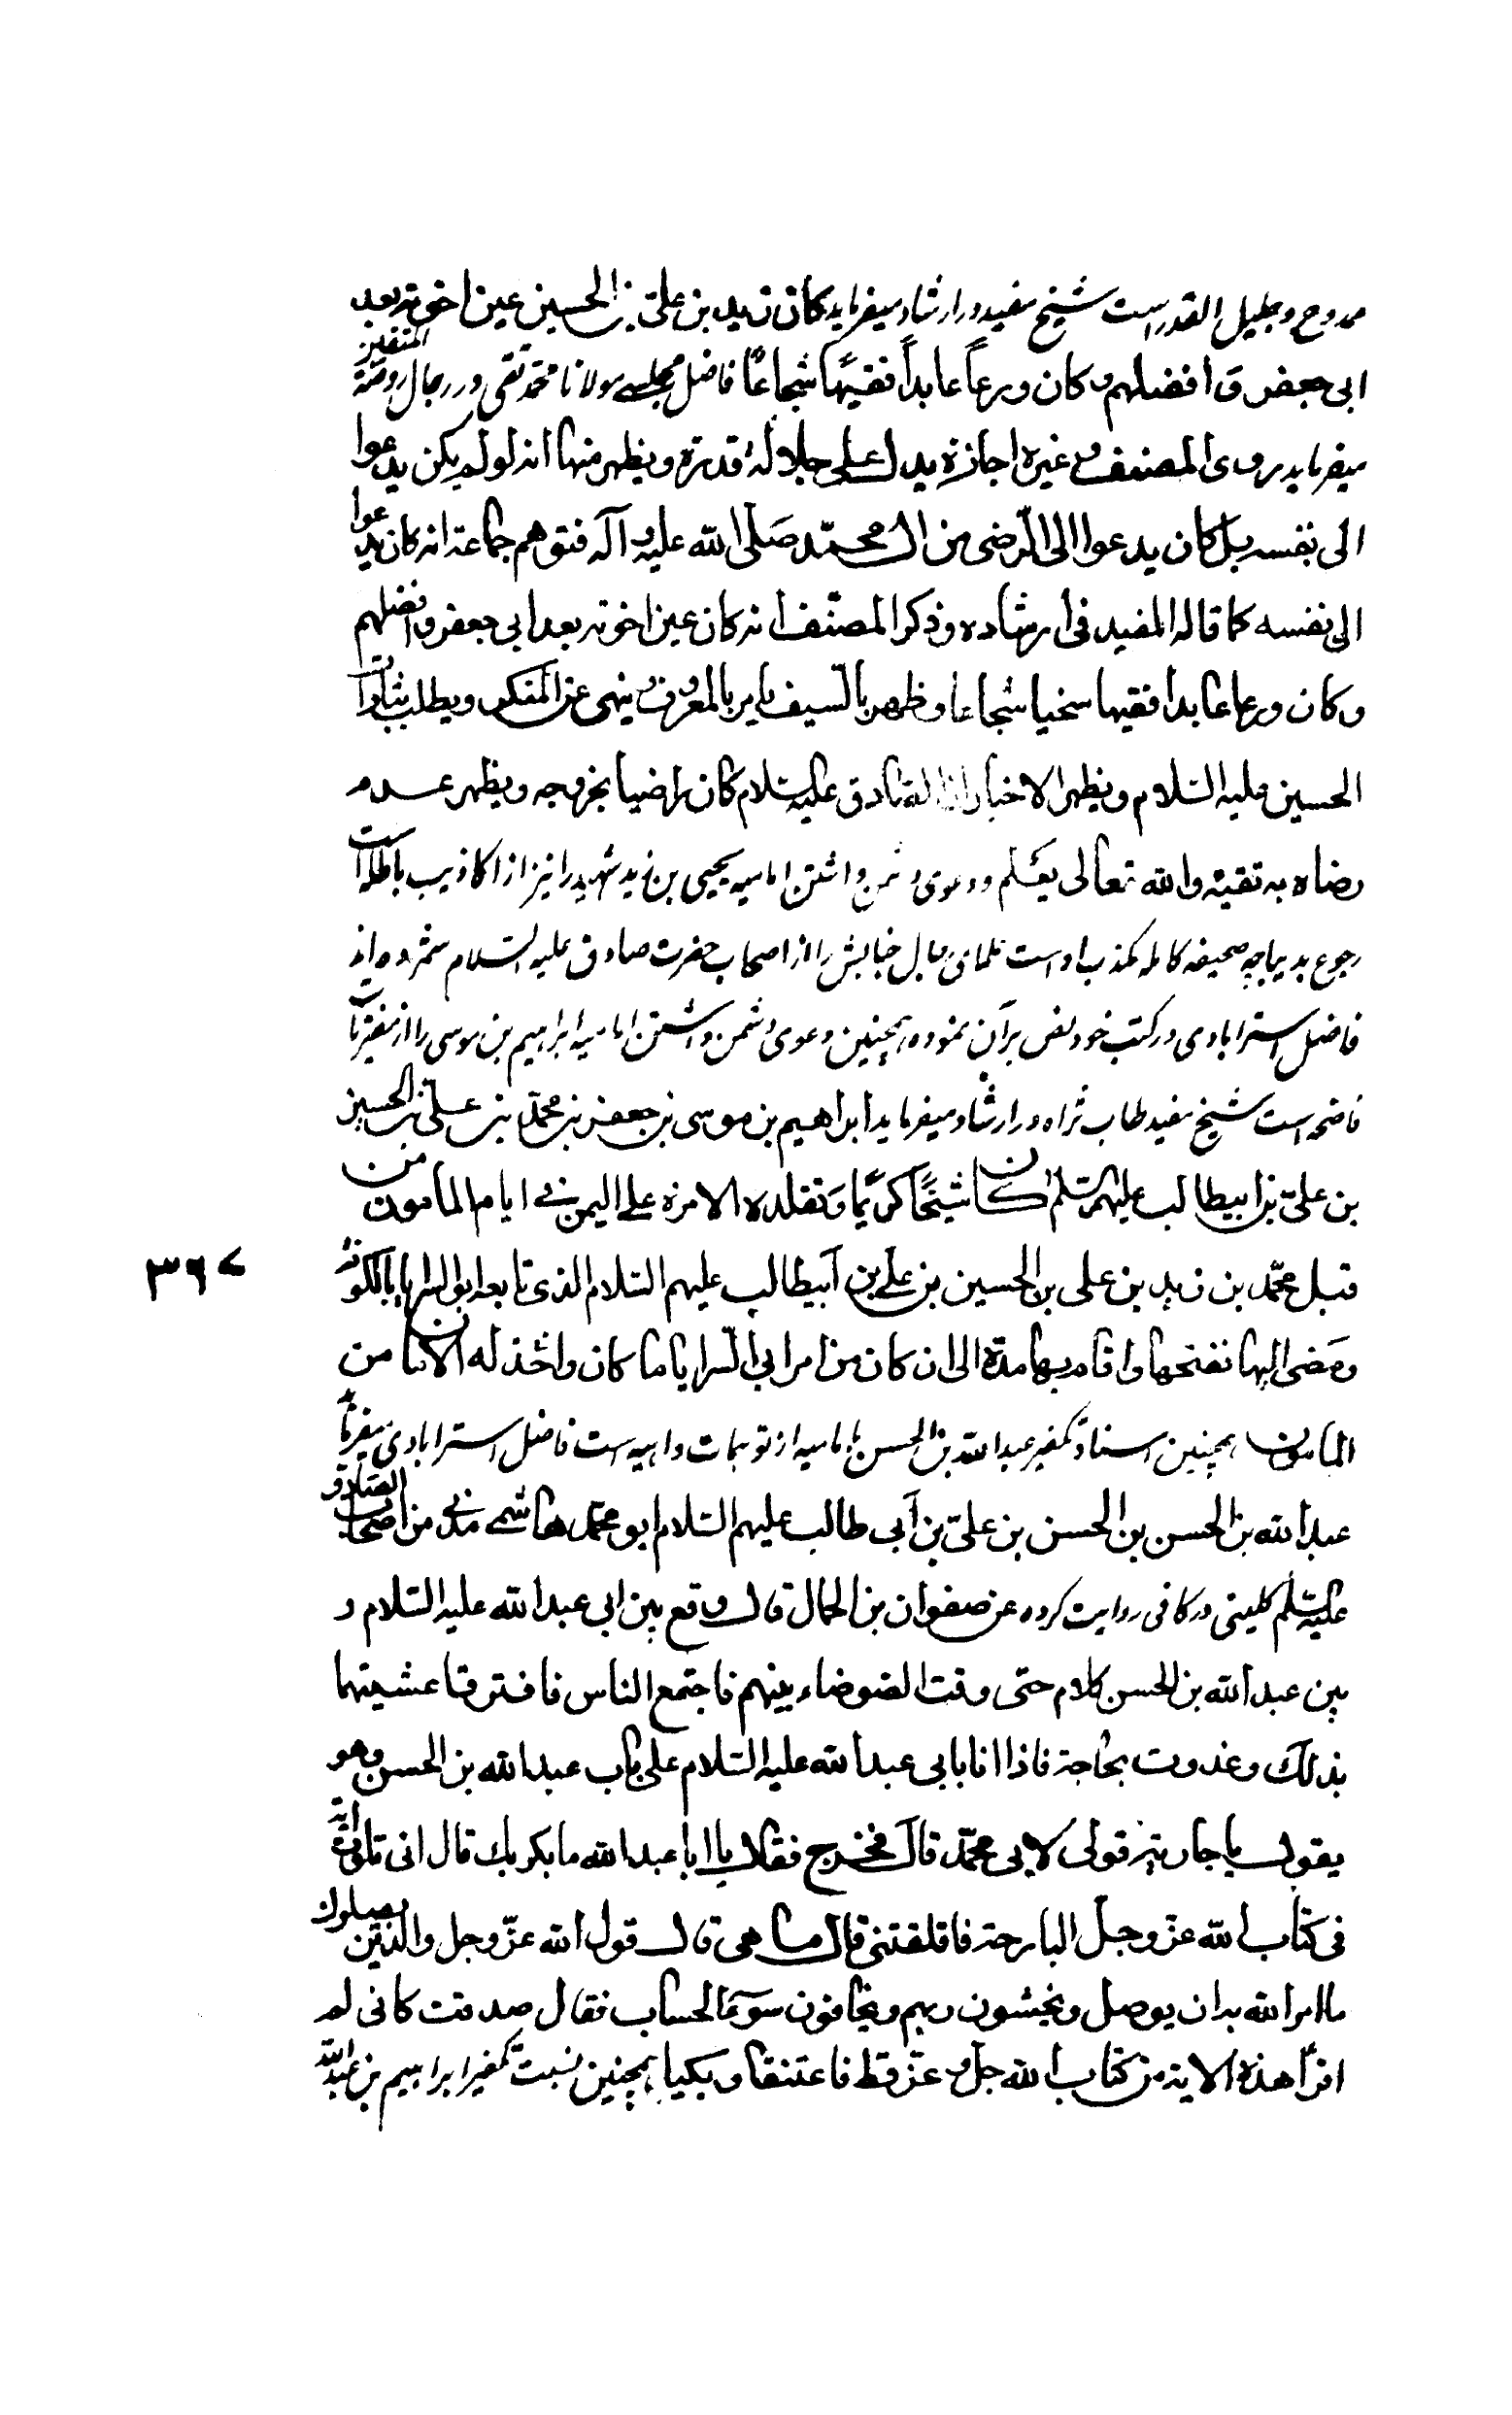 ممدوح و جلیل القدر است شیخ مفید در ارشاد میفرماید کان زید بن علی بن الحسین عین اخوته بعد
ابی جعفر و افضلهم و کان ورعاً عابداً فقیهاً شجاعاً فاضل مجلسی مولانا محمد تقی در رجال روضة المتقین
میفرماید روی المصنف و غیره اجازة یدل علی جلالة قدره و یظهر منها انه لو لم یکن یدعوا
الی نفسه بل کان یدعوا الی الرضی من ال محمّد صلی الله علیه و آله فتوهم جماعة انه کان یدعوا
الی نفسه کما قاله المفید فی ارشاده و ذکر المصنّف انه کان عین اخوته بعد ابی جعفر و افضلهم
و کان ورعا عابدا فقیها سخیا شجاعا و ظهر بالسیف یامر بالمعروف و ینهی عن المنکر و یطلب بثارات
الحسین علیه السّلام و یظهر الاخبار ان الصادق علیه السلام کان راضیا بخروجه و یظهر عدم
رضاه به تقیة و الله تعالی یعلم و دعوی دشمن داشتن امامیه یحیی بن زید شهید را نیز از اکاذیب باطله است
رجوع بدیباچه صحیفه کامله مکذب او است علمای رجال جنابش را از اصحاب حضرت صادق علیه السلام شمرده اند
فاضل استرابادی در کتب خود نص بر آن نموده همچنین دعوی دشمن داشتن امامیه ابراهیم بن موسی را از مفتریات
فاضحه است شیخ مفید طاب ثراه در ارشاد میفرماید ابراهیم بن موسی بن جعفر بن محمّد بن علی بن الحسین
بن علی بن ابیطالب علیهم السلام کان شیخاً کریماً و تقلد الامرة علی الیمن فی ایام المامون من
قبل محمّد بن زید بن علی بن الحسین بن علی بن ابیطالب علیهم السّلام الذی تابعه ابو السرایا بالکوفة
۳۶۷
و مضی الیها ففتحها و اقام بها مدّة الی ان کان من امر ابی السّرایا ما کان و اخذ له الامان من
المامون همچنین اسناد تکفیر عبد الله بن الحسن بامامیه از توهمات واهیه است فاضل استرابادی میفرماید
عبد الله بن الحسن بن الحسن بن علیّ بن أبی طالب علیهم السّلام ابو محمّد هاشمی مدنی من اصحاب الصّادق
علیه السّلم کلینی در کافی روایت کرده عن صفوان بن الجمال قال وقع بین ابی عبد الله علیه السّلام و
بین عبد الله بن الحسن کلام حتی وقت الضوضاء بینهم فاجتمع الناس فافترقا عشیتهما
بذلک و غدوت بحاجة فاذا انا بابی عبد الله علیه السّلام علی باب عبد الله بن الحسن و هو
یقول یا جاریة قولی لابی محمّد قال فخرج فقال یا ابا عبد الله ما بکر بک قال انی تلوت ایة
فی کتاب الله عزّ و جلّ البارحة فاقلقتنی قال ما هی قال قول الله عزّ و جل و الذین یصلون
ما امر الله به ان یوصل و یخشون ربهم و یخافون سوء الحساب فقال صدقت کانی لم
اقرأ هذه الایة من کتاب الله جل و عزّ قط فاعتنقا و بکیا همچنین نسبت تکفیر ابراهیم بن عبد الله